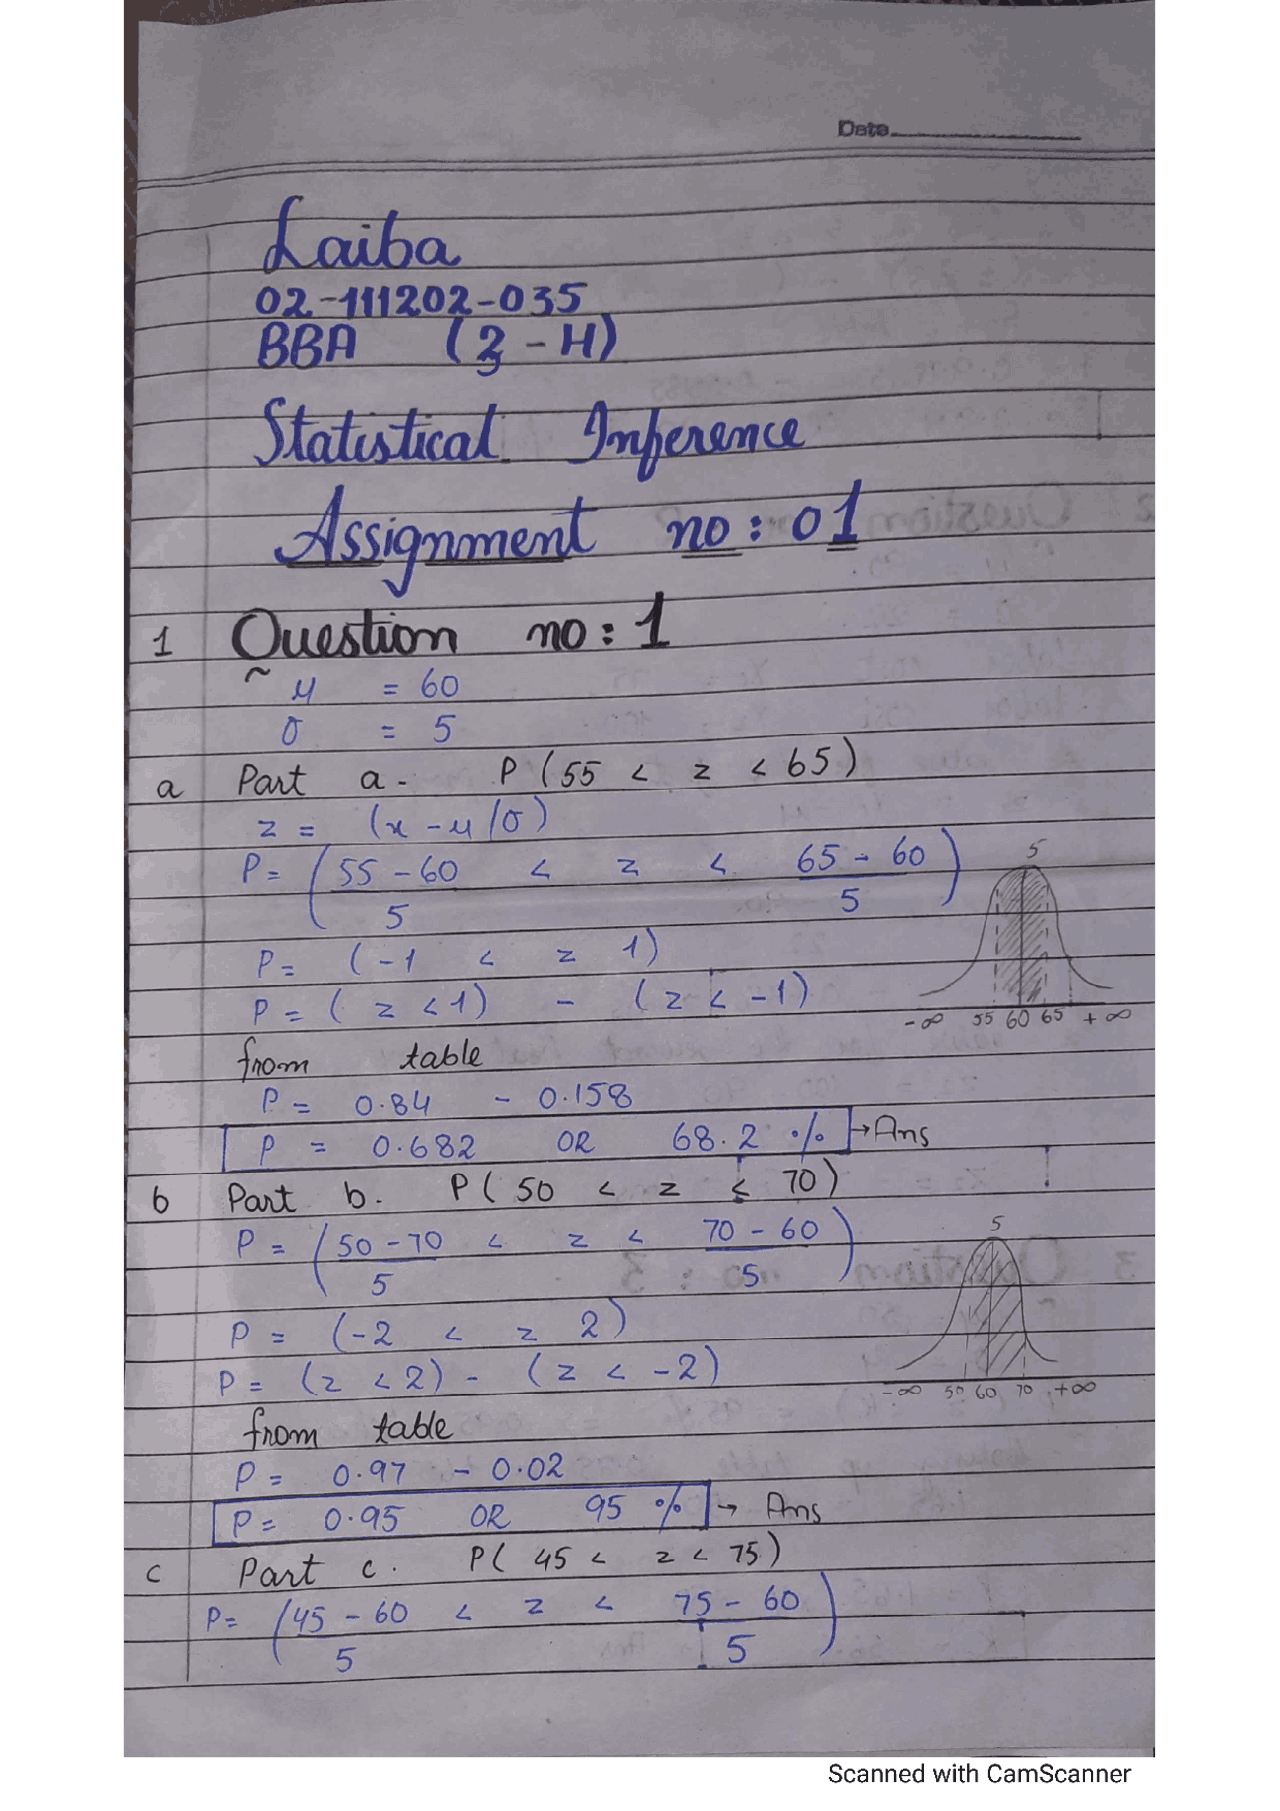 Date
Laiba
02-111202-035
BBA (3-H)
Statistical Inference
Assignment no: 01
1 Question no: 1
~ μ = 60
σ = 5
a Part a- P (55 < z < 65)
z = (x - μ / σ)
P= (55 - 60 / 5 < z < 65 - 60 / 5)
P= (-1 < z 1)
P = ( z < 1) - (z < -1)
from table
P = 0.84 - 0.158
P = 0.682 OR 68.2 % → Ans
5
-∞ 55 60 65 +∞
b Part b. P( 50 < z < 70)
P = (50 - 70 / 5 < z < 70 - 60 / 5)
P = (-2 < z 2)
P = (z < 2) - (z < -2)
from table
P = 0.97 - 0.02
P = 0.95 OR 95 % → Ans
5
-∞ 50 60 70 +∞
c Part c. P( 45 < z < 75)
P= (45 - 60 / 5 < z < 75 - 60 / 5)
Scanned with CamScanner